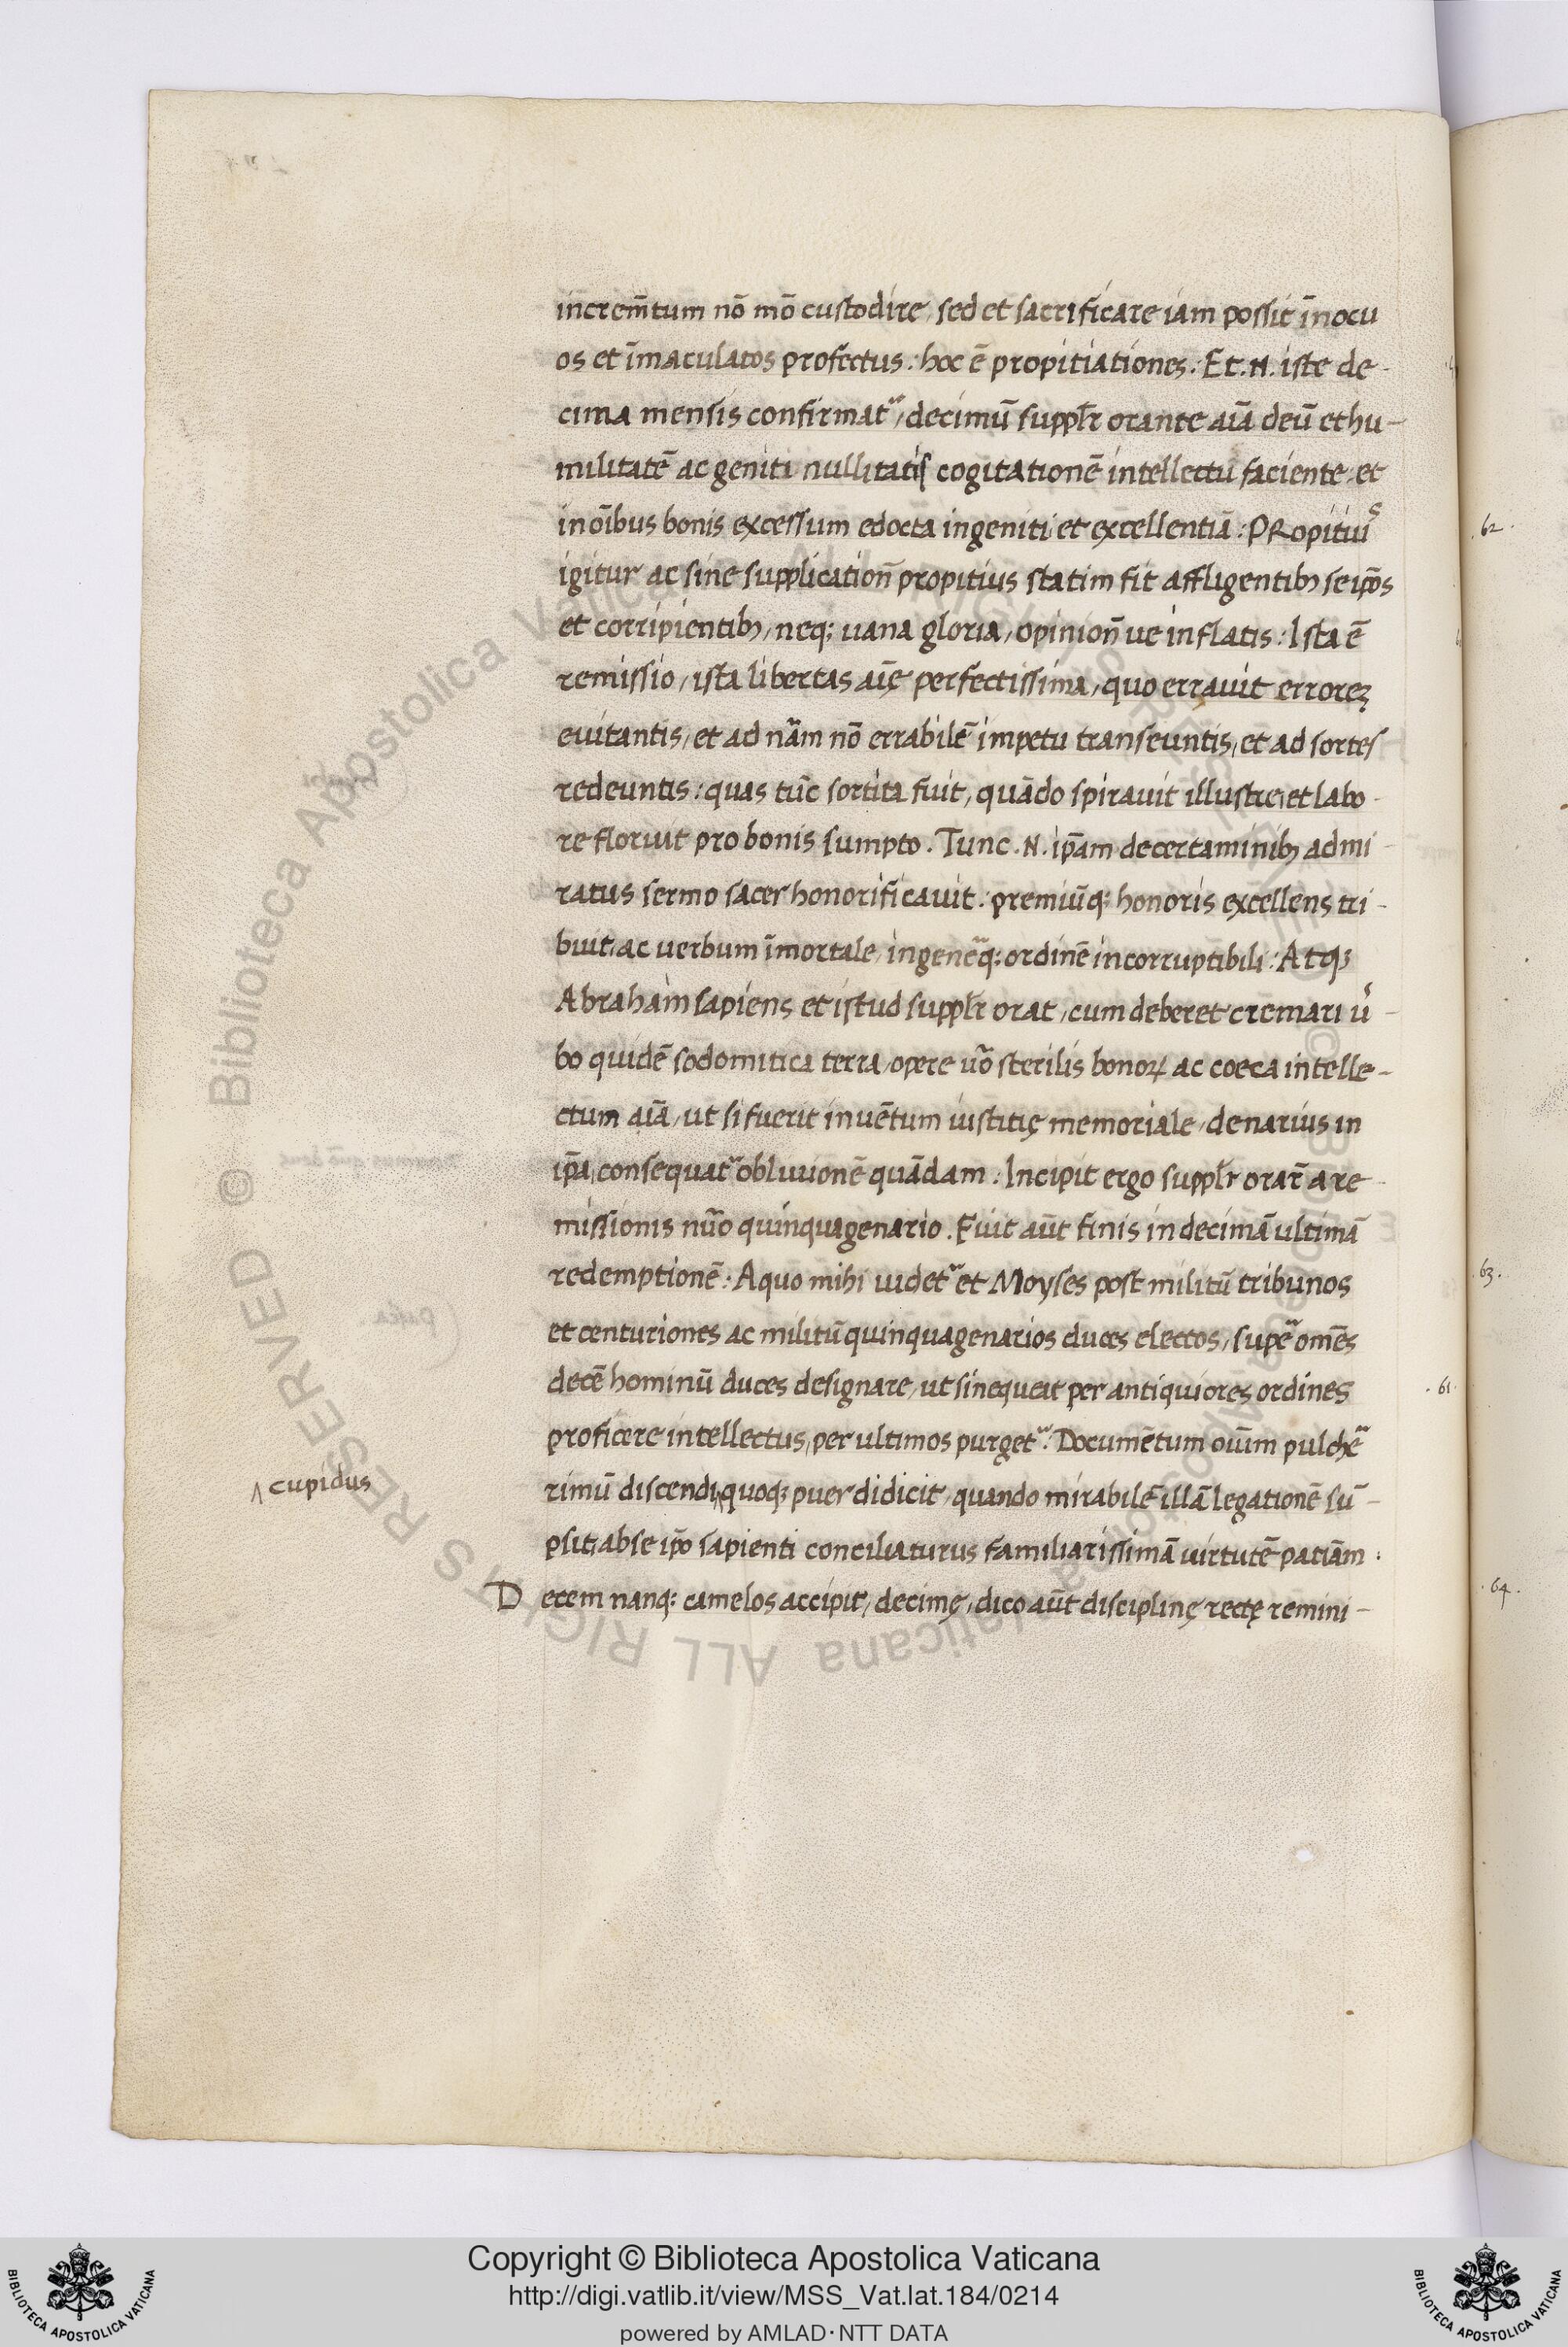 increm̄tum nō mō custodire, sed et sacrificare iam possit īnocu
os et īmaculatos profectus: hoc ē propitiationes: Et .N. iste de-
cima mensis confirmat᷑, decimū supplr̄ orante aīā deū et hu-
militatē ac geniti nullitatis cogitationē intellectu faciente, et
in oībus bonis excessum edocta ingeniti et excellentiā: PRopitiuˢ
igitur ac sine supplication̄ propitius statim fit affligentibꝫ se ip̄os
et corripientibꝫ, neqꝫ uana gloria, opinion̄ ue inflatis: Ista ē
remissio, ista libertas aīę perfectissima, quo erravit erroreꝫ
euitantis, et ad nãm nō errabilē impetu transeuntis, et ad sortes
redeuntis: quas tūc sortita fuit, quādo spiravit illustre, et labo-
re floruit pro bonis sumpto. Tunc .N. ip̄am decertaminibꝫ admi-
ratus sermo sacer honorificavit: premiūqꝫ honoris excellens tri-
buit, ac uerbum īmortale, ingeneqꝫ ordinē incorruptibili: Atqꝫ
Abraham sapiens et istud supplr̄ orat, cum deberet cremari u̓-
bo quidē sodomitica terra, opere uõ sterilis bonoꝝ ac coeca intelle-
ctum aīā, ut si fuerit inuētum iustitię memoriale, denarius in
ip̄a, consequat᷑ obliuionē quādam: Incipit ergo supplr̄ orar̄ a re-
missionis nũo quinquagenario. Fuit aūt finis in decimā ultimā
redemptionē: A quo mihi uidet᷑ et Moyses post militū tribunos
et centuriones ac militū quinquagenarios duces electos, supe᷑ omēs
decē hominū duces designare, ut si nequeat per antiquiores ordines
proficere intellectus, per ultimos purget᷑: Documētum oiūm pulche᷑
rimū discendi‸ quoqꝫ puer didicit, quando mirabilē illā legationē sū-
psit, ab se ip̄o sapienti conciliaturus familiarissimā uirtutē patiām:
‸ cupidus
Decem nanqꝫ camelos accipit, decimę, dico aūt disciplinę rectę remini-
.62.
.63.
.61.
.64.
Biblioteca Apostolica Vaticana ALL RIGHTS RESERVED ©
Copyright © Biblioteca Apostolica Vaticana
http://digi.vatlib.it/view/MSS_Vat.lat.184/0214
powered by AMLAD·NTT DATA
BIBLIOTECA APOSTOLICA VATICANA
BIBLIOTECA APOSTOLICA VATICANA